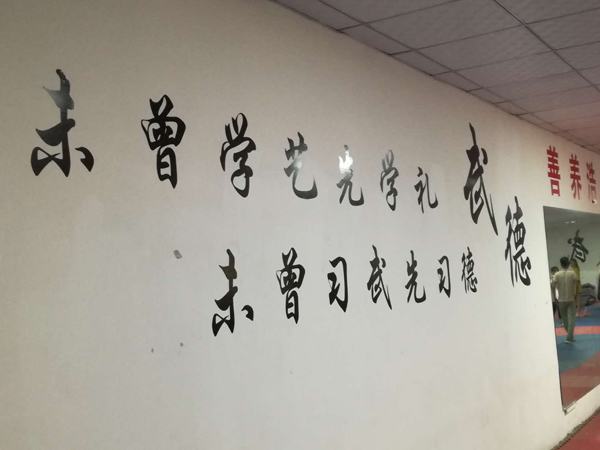 未曾学艺先学礼
未曾习武先习德
武德
善养浩